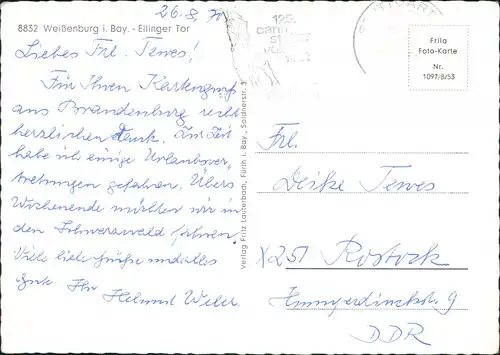 26.8.70
8832 Weißenburg i. Bay. - Ellinger Tor
Liebes Frl. Tewes!
Für Ihren Kartengruß
aus Brandenburg recht
herzlichen Dank. Zur Zeit
habe ich einige Urlaubsver-
tretungen gefahren. Übers
Wochenende möchten wir in
den Schwarzwald fahren.
Viele liebe Grüße und alles
Gute Ihr Helmut Weber
Verlag Fritz Lauterbach, Fürth i. Bay., Soldnerstr. 3
125.
cann
st
vol
Frila
Foto-Karte
Nr.
1097/8/53
Frl.
Tewes
X 251 Rostock
9
DDR